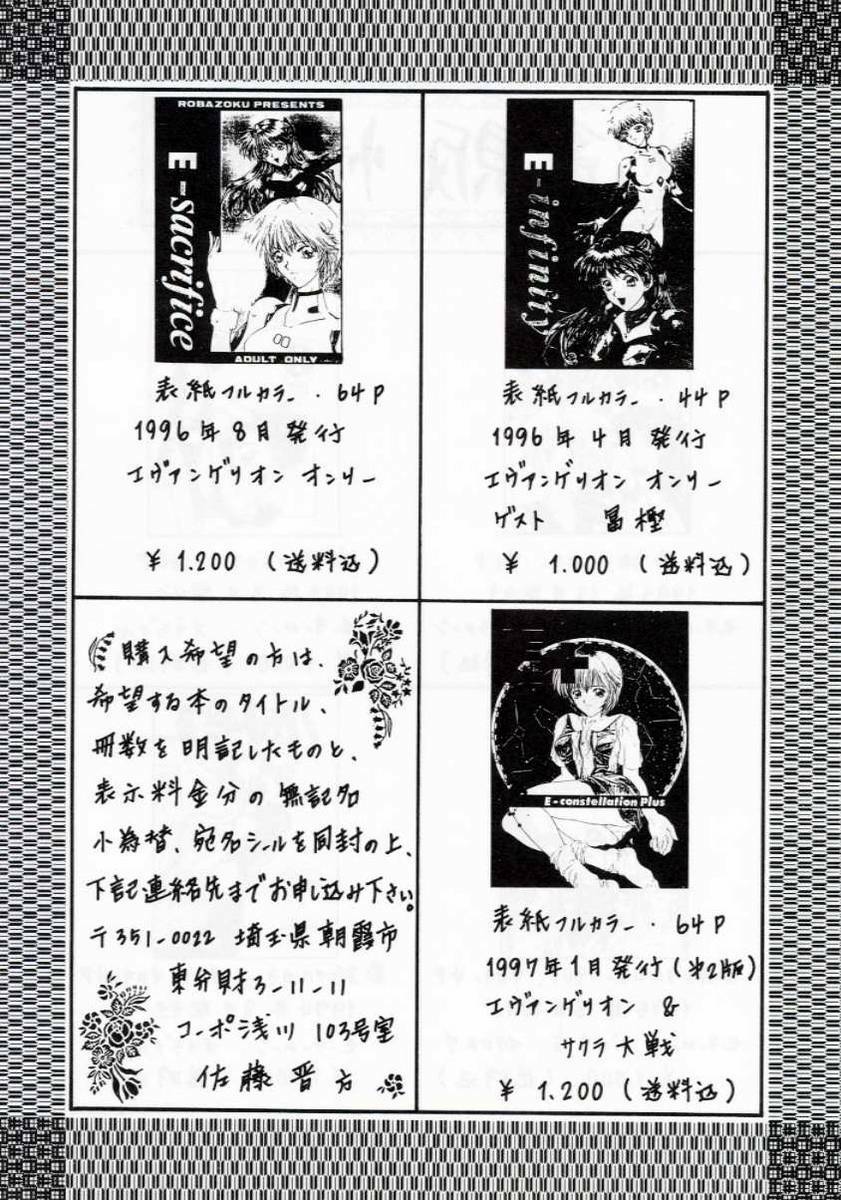 ROBAZOKU PRESENTS
E-sacrifice
ADULT ONLY
表紙フルカラー・64P
1996年8月発行
エヴァンゲリオン オンリー
¥1.200 (送料込)
E-infinity
表紙フルカラー・44P
1996年4月発行
エヴァンゲリオン オンリー
ゲスト 冨樫
¥1.000 (送料込)
購入希望の方は、
希望する本のタイトル、
冊数を明記したものと、
表示料金分の無記名
小為替、宛名シールを同封の上、
下記連絡先までお申し込み下さい。
〒351-0022 埼玉県朝霞市
東弁財3-11-11
コーポラ浅川 103号室
佐藤晋方
E-constellation Plus
表紙フルカラー・64P
1997年1月発行(第2版)
エヴァンゲリオン &
サクラ大戦
¥1.200 (送料込)